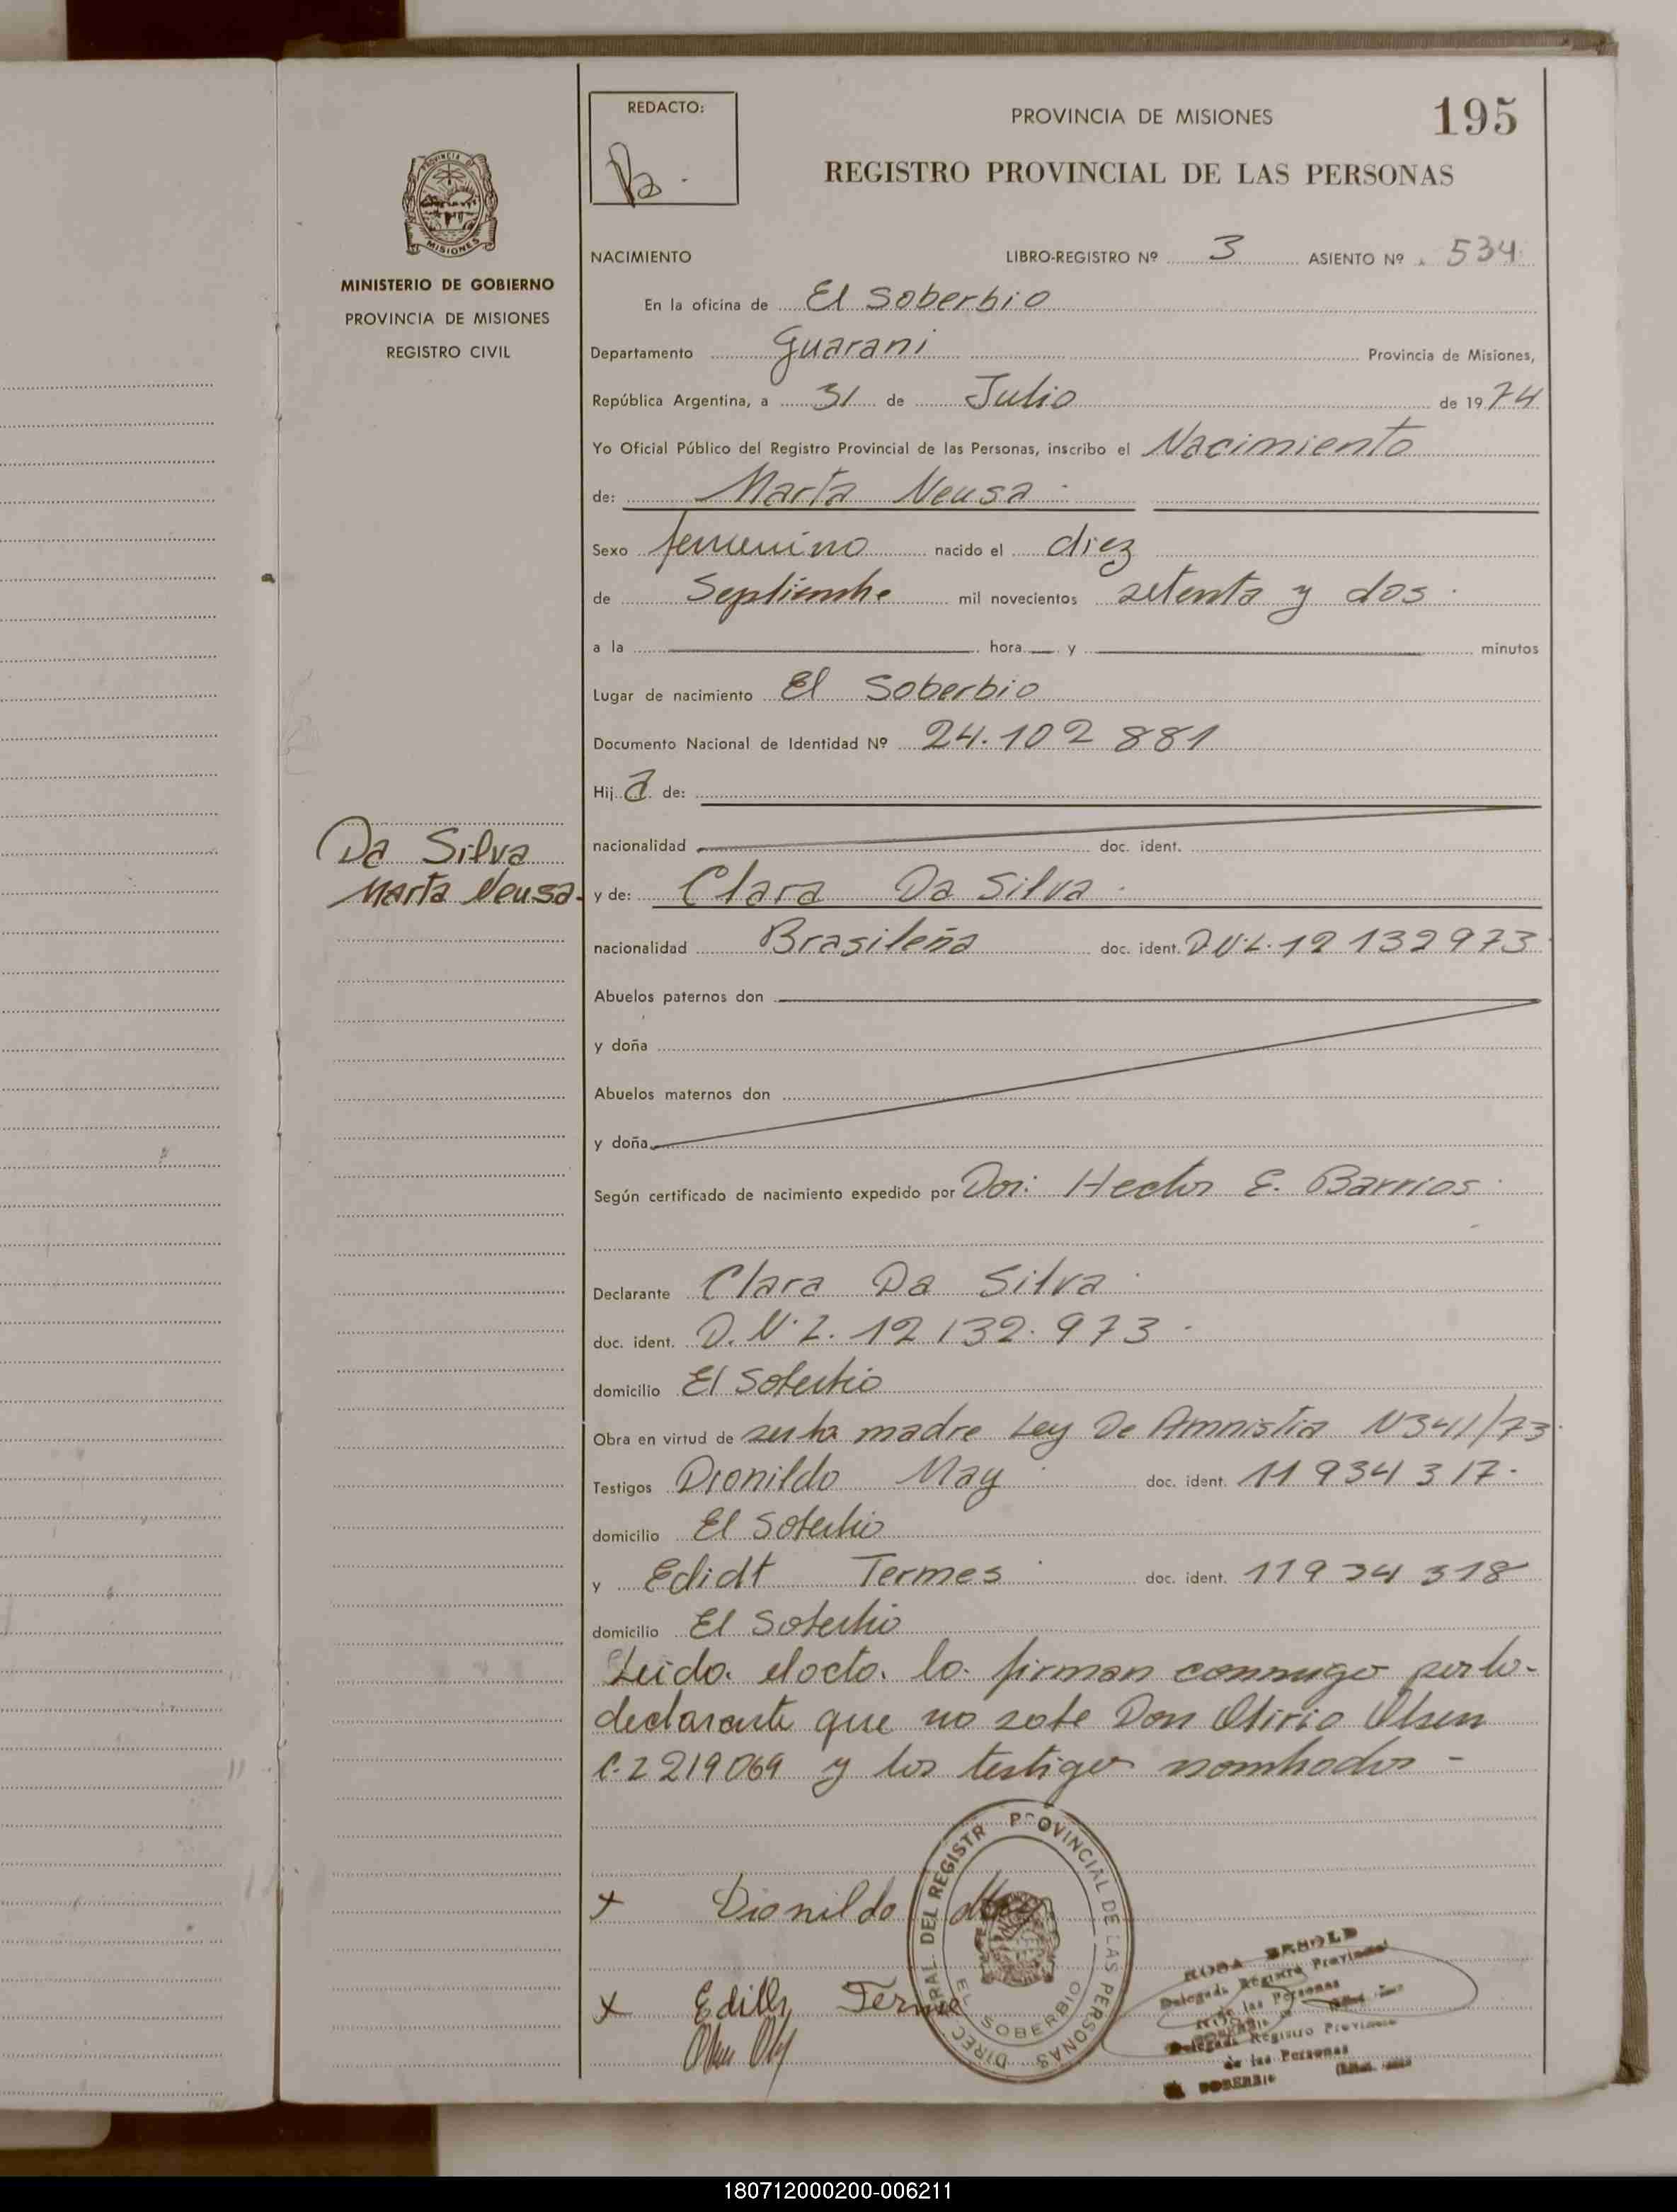 REDACTO:
PROVINCIA DE MISIONES
195
REGISTRO PROVINCIAL DE LAS PERSONAS
PROVINCIA DE
MISIONES
MINISTERIO DE GOBIERNO
PROVINCIA DE MISIONES
REGISTRO CIVIL
NACIMIENTO LIBRO-REGISTRO Nº 3 ASIENTO Nº 534
En la oficina de El Soberbio
Departamento Guarani Provincia de Misiones,
República Argentina, a 31 de Julio de 1974
Yo Oficial Público del Registro Provincial de las Personas, inscribo el Nacimiento
de: Marta Neusa
Sexo femenino nacido el diez
de Septiembre mil novecientos setenta y dos
a la hora y minutos
Lugar de nacimiento El Soberbio
Documento Nacional de Identidad Nº 24.102 881
Hija de:
nacionalidad doc. ident.
Da Silva
Marta Neusa.
y de: Clara Da Silva
nacionalidad Brasileña doc. ident. D.N.I. 12 132973
Abuelos paternos don
y doña
Abuelos maternos don
y doña
Según certificado de nacimiento expedido por Dor: Hector E. Barrios
Declarante Clara Da Silva
doc. ident. D.N.I. 12 132.973
domicilio El Soberbio
Obra en virtud de ser la madre Ley De Amnistia N341/73
Testigos Dionildo May doc. ident. 11 934 317
domicilio El Soberbio
y Edidt Termes doc. ident. 11 934 318
domicilio El Soberbio
Leida el acta la firman conmigo por la
declarante que no sabe Don Olirio Olsen
C.I 219069 y los testigos nombrados -
x Dionildo May
x Edith
DIREC. GRAL. DEL REGISTR PROVINCIAL DE LAS PERSONAS
EL SOBERBIO
ROSA ARNOLD
Delegada Registro Provincial
de las Personas
Delegada Registro Provincial
de las Personas
SOBERBIO
180712000200-006211